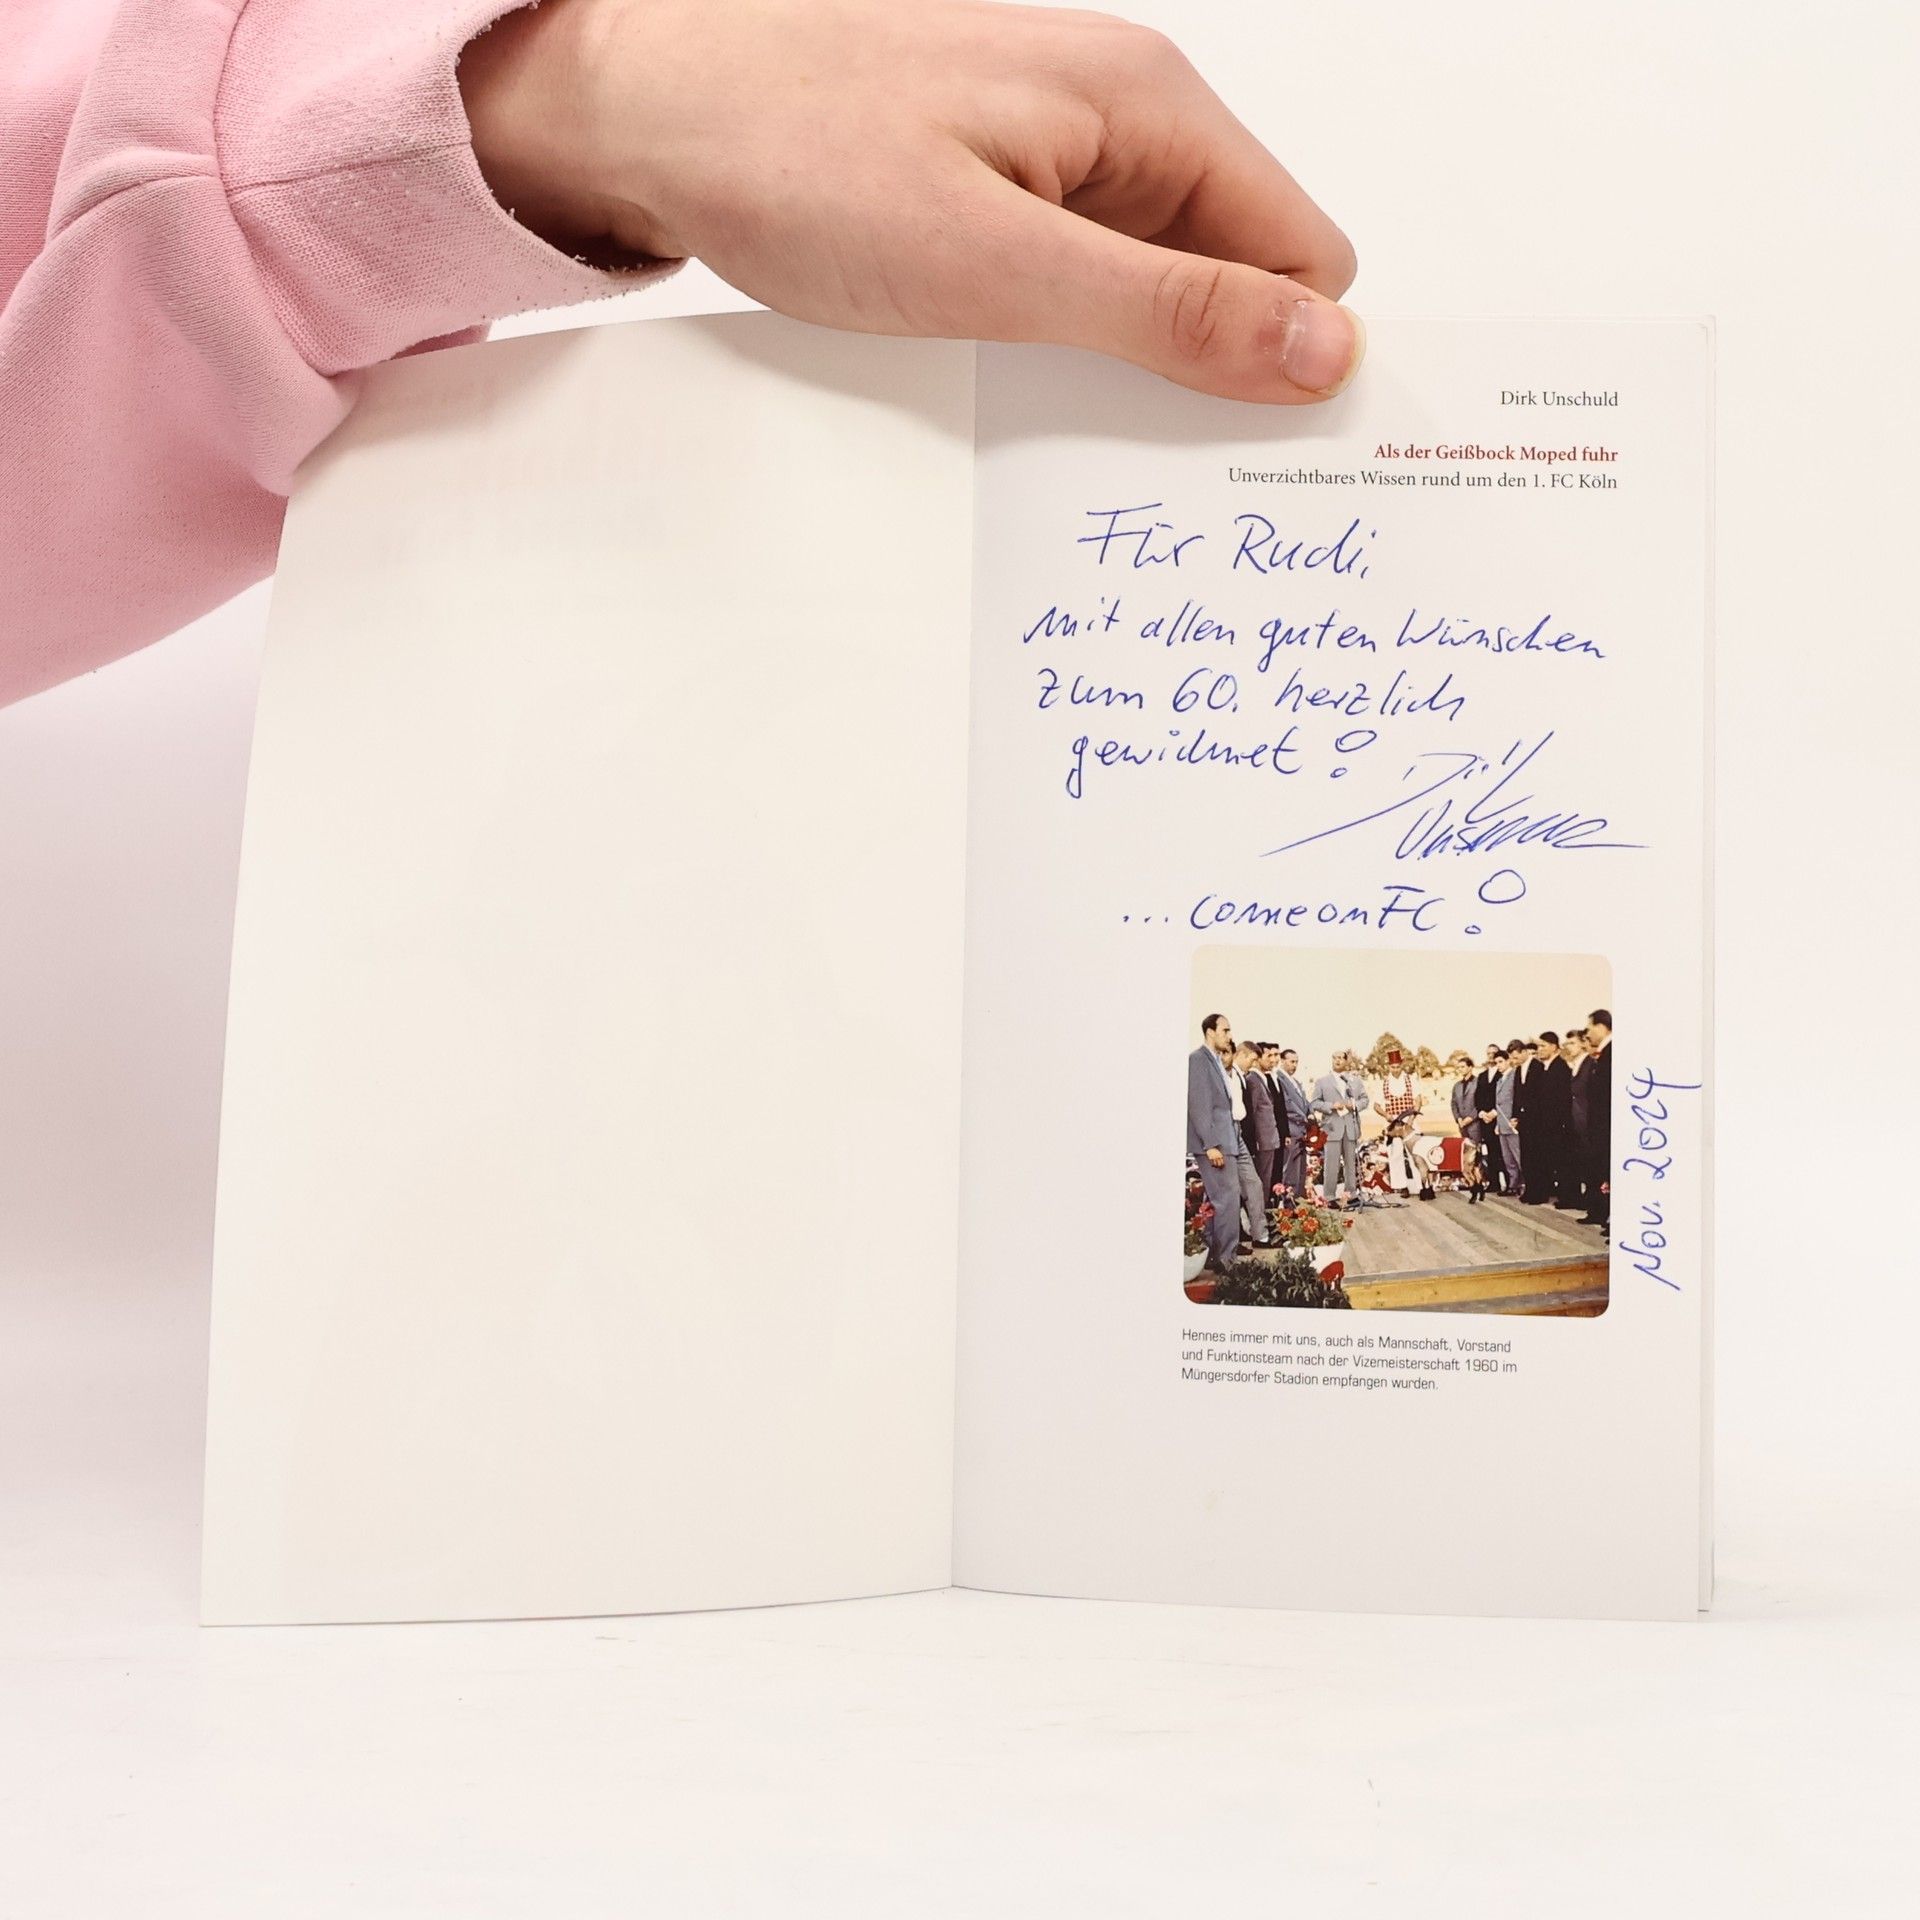 Dirk Unschuld
Als der Geißbock Moped fuhr
Unverzichtbares Wissen rund um den 1. FC Köln
Für Rudi,
mit allen guten Wünschen
zum 60. herzlich
gewidmet!
Dirk
Unschuld
... come on FC!
Nov. 2024
Hennes immer mit uns, auch als Mannschaft, Vorstand
und Funktionsteam nach der Vizemeisterschaft 1960 im
Müngersdorfer Stadion empfangen wurden.